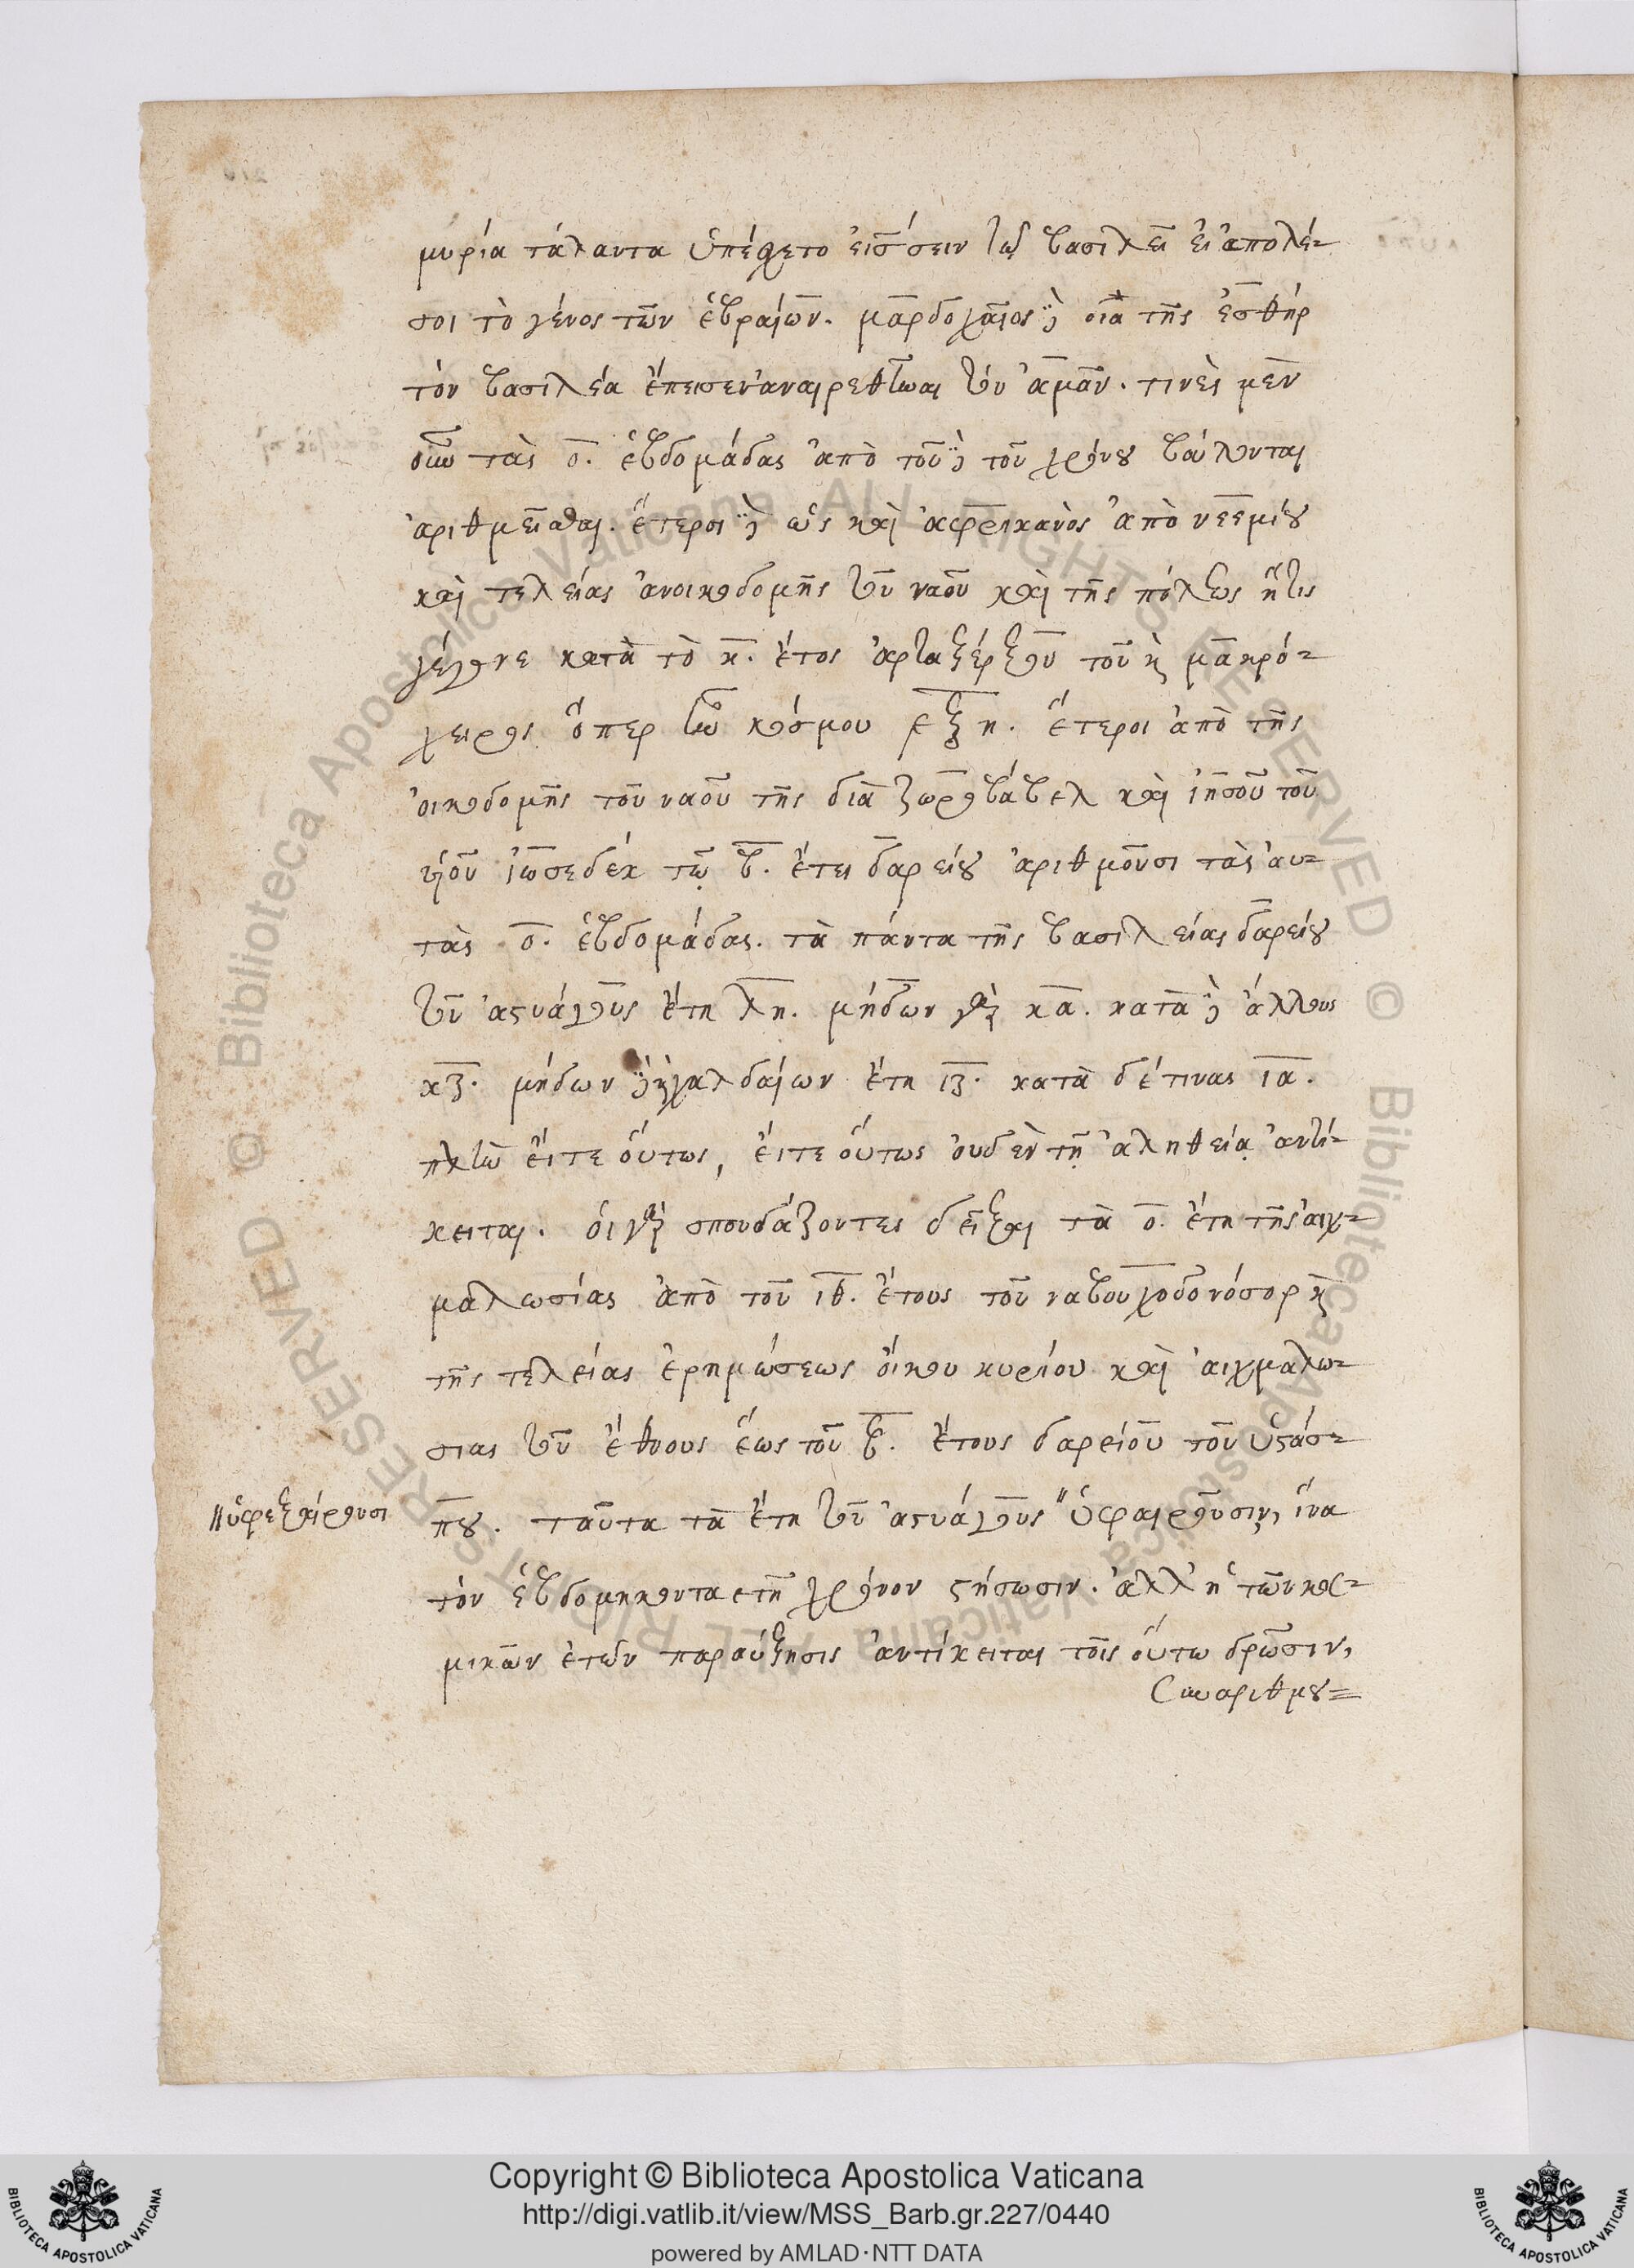 μυρία τάλαντα ὑπέσχετο εἰσοίσειν τῷ βασιλεῖ εἰ ἀπολέ-
σοι τὸ γένος τῶν ἑβραίων. μαρδοχαῖος δὲ διὰ τῆς ἐσθὴρ
τὸν βασιλέα ἔπεισεν ἀναιρεθῆναι τὸν ἀμὰν. τινὲς μὲν
οὖν τὰς ο̅. ἑβδομάδας ἀπὸ τοῦδε τοῦ χρόνου βούλονται
ἀριθμεῖσθαι. ἕτεροι δὲ ὡς καὶ ἀφρικανὸς ἀπὸ νεεμίου
καὶ τελείας ἀνοικοδομῆς τοῦ ναοῦ καὶ τῆς πόλεως ἥτις
γέγονε κατὰ τὸ κ̅. ἔτος ἀρταξέρξου τοῦ καὶ μακρό-
χειρος ὅπερ ἦν κόσμου ͵ε̅ξ̅η̅. ἕτεροι ἀπὸ τῆς
οἰκοδομῆς τοῦ ναοῦ τῆς διὰ ζωροβάβελ καὶ ἰησοῦ τοῦ
υἱοῦ ἰωσεδὲκ τῷ β̅. ἔτει δαρείου ἀριθμοῦσι τὰς αὐ-
τὰς ο̅. ἑβδομάδας. τὰ πάντα τῆς βασιλείας δαρείου
τοῦ ἀστυάγους ἔτη λ̅η̅. μήδων γὰρ κ̅α̅. κατὰ δὲ ἄλλους
κ̅ζ̅. μήδων δὲ καὶ χαλδαίων ἔτη ι̅ζ̅. κατὰ δέ τινας ι̅α̅.
πλὴν εἴτε οὕτως, εἴτε οὕτως οὐδὲν τῇ ἀληθείᾳ ἀντί-
κειται. οἱ γὰρ σπουδάζοντες δεῖξαι τὰ ο̅. ἔτη τῆς αἰχ-
μαλωσίας ἀπὸ τοῦ ι̅θ̅. ἔτους τοῦ ναβουχοδονόσορ καὶ
τῆς τελείας ἐρημώσεως οἴκου κυρίου καὶ αἰχμαλω-
σιας τοῦ ἔθνους ἕως τοῦ β̅. ἔτους δαρείου τοῦ ὑστάσ-
που. ταῦτα τὰ ἔτη τοῦ ἀστυάγους " ὑφαιροῦσιν, ἵνα
" ὑφεξαίρουσι
τὸν ἑβδομηκονταετῆ χρόνον στήσωσιν. ἀλλ' ἡ τῶν κοσ-
μικῶν ἐτῶν παραύξησις ἀντίκειται τοῖς οὕτω δρῶσιν,
συναριθμου=
Copyright © Biblioteca Apostolica Vaticana
http://digi.vatlib.it/view/MSS_Barb.gr.227/0440
powered by AMLAD·NTT DATA